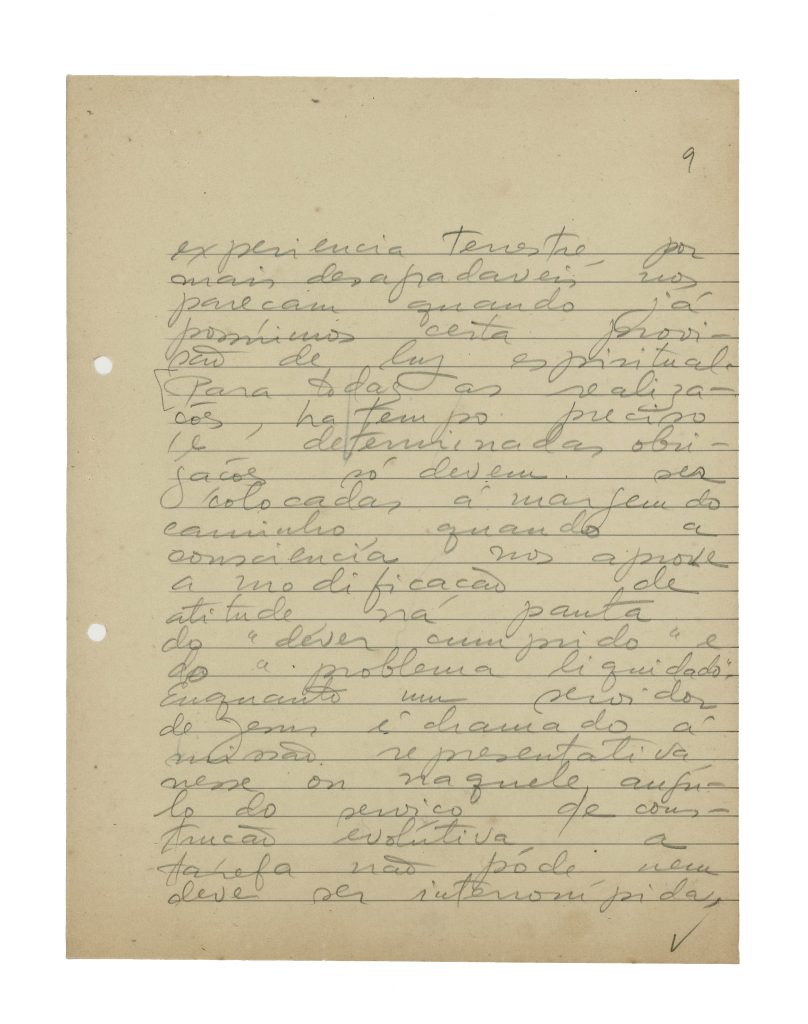 9
experiencia terrestre, por
mais desagradaveis nos
pareçam quando já
possúimos certa provi-
são de luz espiritual.
[Para todas as realiza-
cões, ha tempo preciso
e determinadas obri-
gações só devem ser
colocadas á margem do
caminho, quando a
consciencia nos aprove
a modificacão de
atitude na pauta
do "dever cumprido" e
do "problema liquidado".
Enquanto um servidor
de Jesus é chamado á
missão representativa
nesse ou naquele angu-
lo do serviço de cons-
trucão evolutiva a
tarefa não póde nem
deve ser interrompida,